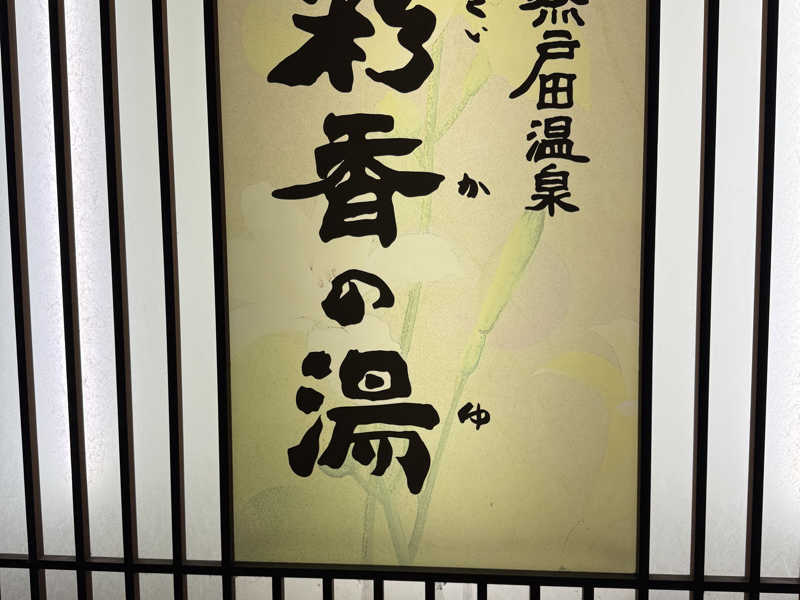 戸田温泉
彩香の湯
さい か ゆ